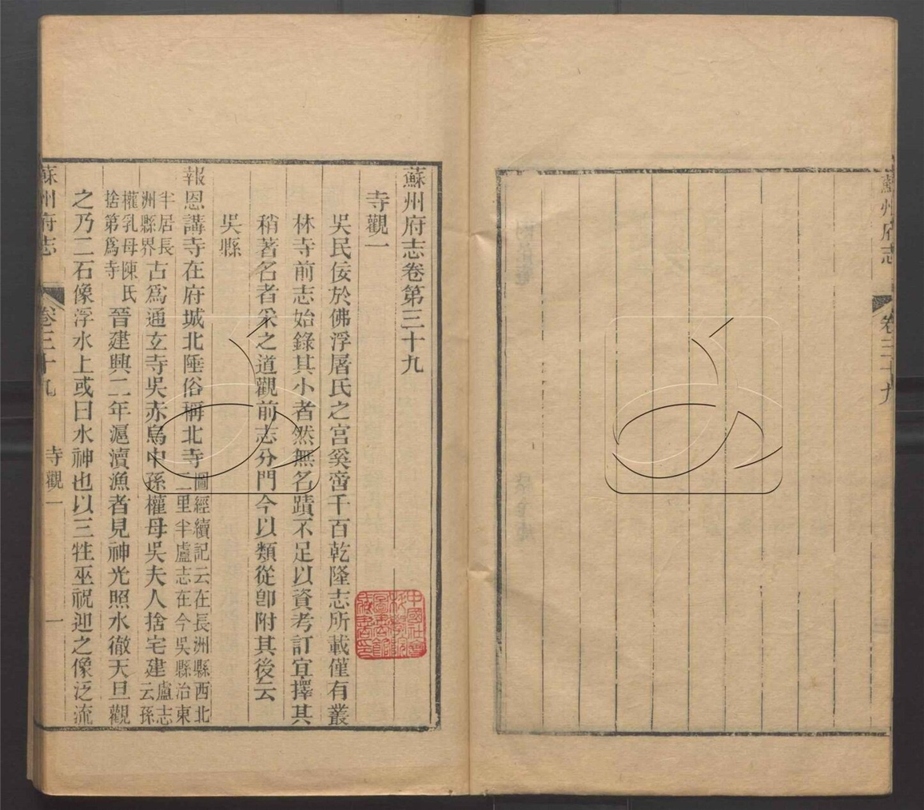 蘇州府志
卷三十九
蘇州府志卷第三十九
寺觀一
吳民佞於佛浮屠氏之宮奚啻千百乾隆志所載僅有叢
林寺前志始錄其小者然無名蹟不足以資考訂宜擇其
稍著名者采之道觀前志分門今以類從卽附其後云
吳縣
報恩講寺在府城北陲俗稱北寺圖經續記云在長洲縣西北二里半盧志在今吳縣治東
半居長洲縣界古爲通玄寺吳赤烏中孫權母吳夫人捨宅建盧志云孫
權乳母陳氏捨第爲寺晉建興二年滬瀆漁者見神光照水徹天旦觀
之乃二石像浮水上或曰水神也以三牲巫祝迎之像泛流
蘇州府志 卷三十九 寺觀一 一